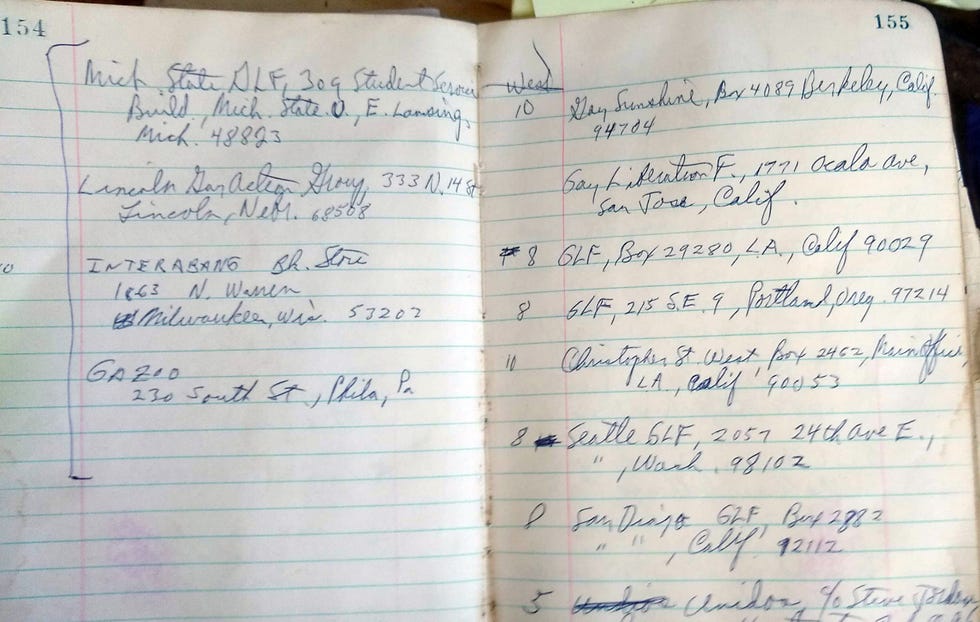 154
Mich. State GLF, 309 Student Services
Build., Mich. State U., E. Lansing,
Mich. 48823
Lincoln Gay Action Group, 333 N. 14 St
Lincoln, Nebr. 68508
INTERABANG Bk. Store
1863 N. Warren
Milwaukee, Wis. 53202
GAZOO
230 South St., Phila, Pa
155
West
10 Gay Sunshine, Box 4089 Berkeley, Calif.
94704
Gay Liberation F., 1771 Ocala ave,
San Jose, Calif.
8 GLF, Box 29280, L.A., Calif 90029
8 GLF, 215 S.E. 9, Portland, Oreg. 97214
10 Christopher St. West, Box 2462, Main Office,
LA., Calif 90053
8 Seattle GLF, 2057 24th Ave E.,
" , Wash. 98102
8 San Diego GLF, Box 2882
" " , Calif 92112
5 Unidos, c/o Steve Jordan